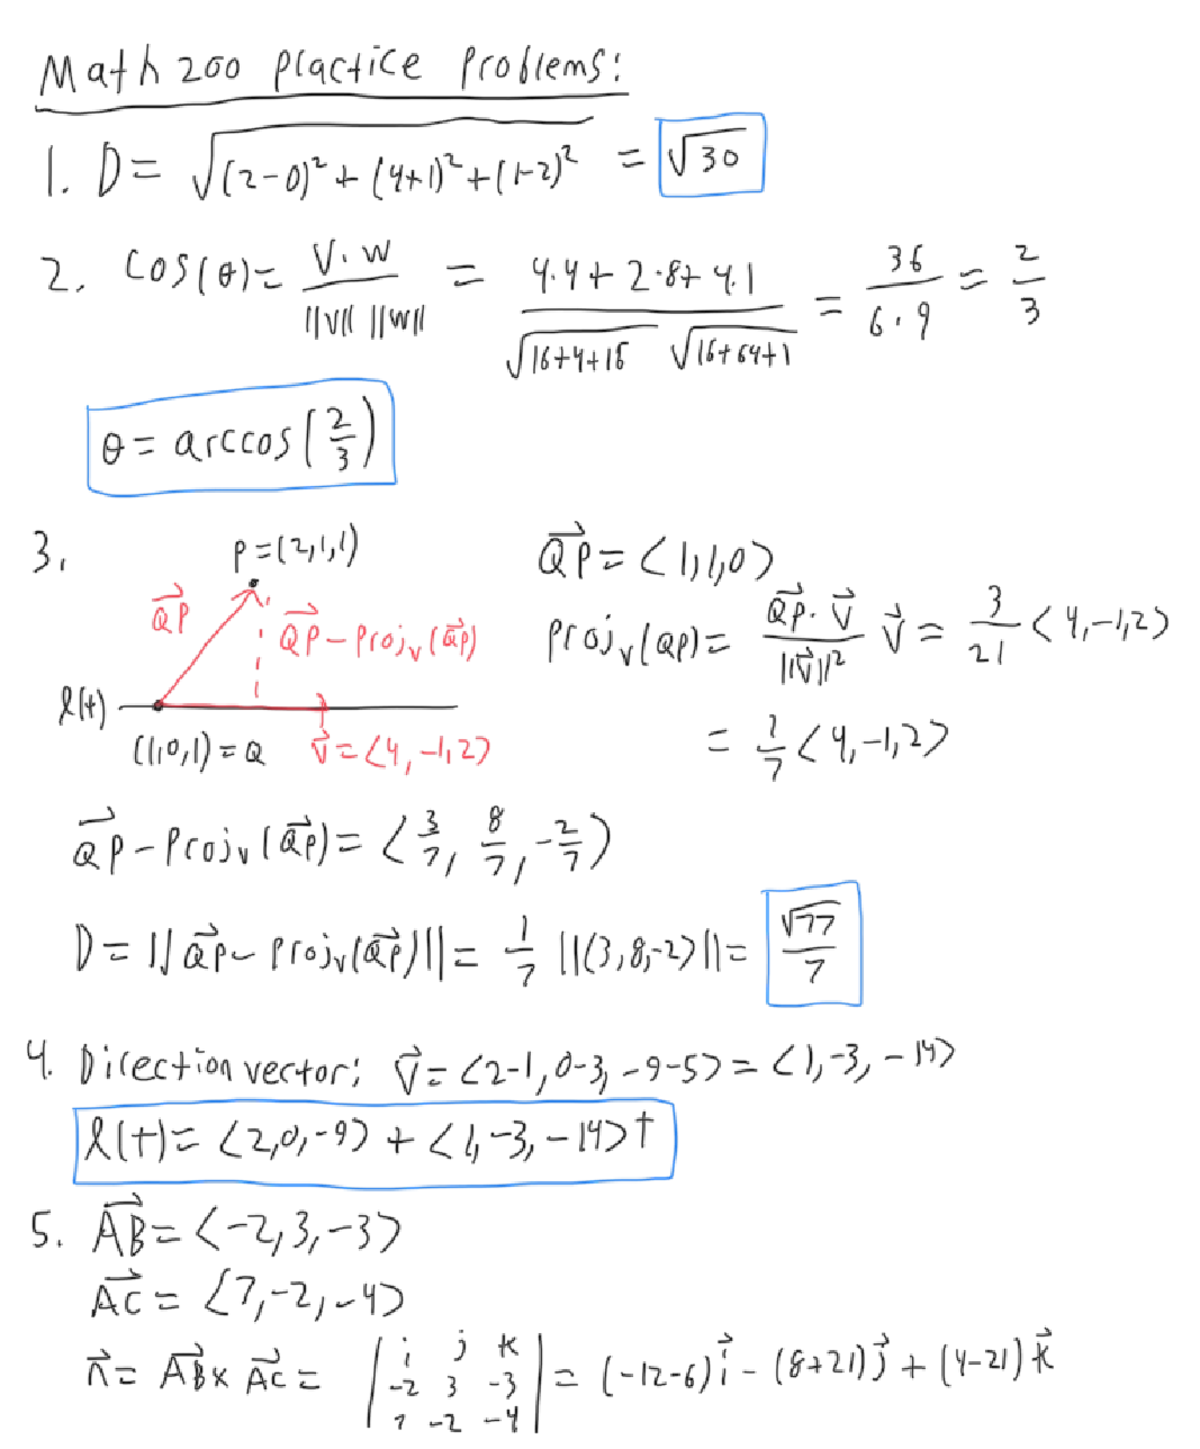 Math 200 practice problems:
1. D = √((2-0)² + (4+1)² + (1-2)²) = √30
2. cos(θ) = V·W / ||V|| ||W|| = 4·4 + 2·8 + 4·1 / √(16+4+16) √(16+64+1) = 36 / 6·9 = 2/3
θ = arccos(2/3)
3. P = (2,1,1)
QP⃗
QP⃗ - Proj_v(QP⃗)
l(t)
(1,0,1) = Q
v⃗ = <4, -1, 2>
QP⃗ = <1,1,0>
Proj_v(QP) = QP⃗·v⃗ / ||v⃗||² v⃗ = 3/21 <4,-1,2>
= 1/7 <4,-1,2>
QP⃗ - Proj_v(QP⃗) = <3/7, 8/7, -2/7>
D = ||QP⃗ - Proj_v(QP⃗)|| = 1/7 ||<3,8,-2>|| = √77/7
4. Direction vector: v⃗ = <2-1, 0-3, -9-5> = <1,-3,-14>
l(t) = <2,0,-9> + <1,-3,-14>t
5. AB⃗ = <-2,3,-3>
AC⃗ = <7,-2,-4>
n⃗ = AB⃗ × AC⃗ = | i j k | = (-12-6)i⃗ - (8+21)j⃗ + (4-21)k⃗
-2 3 -3
7 -2 -4